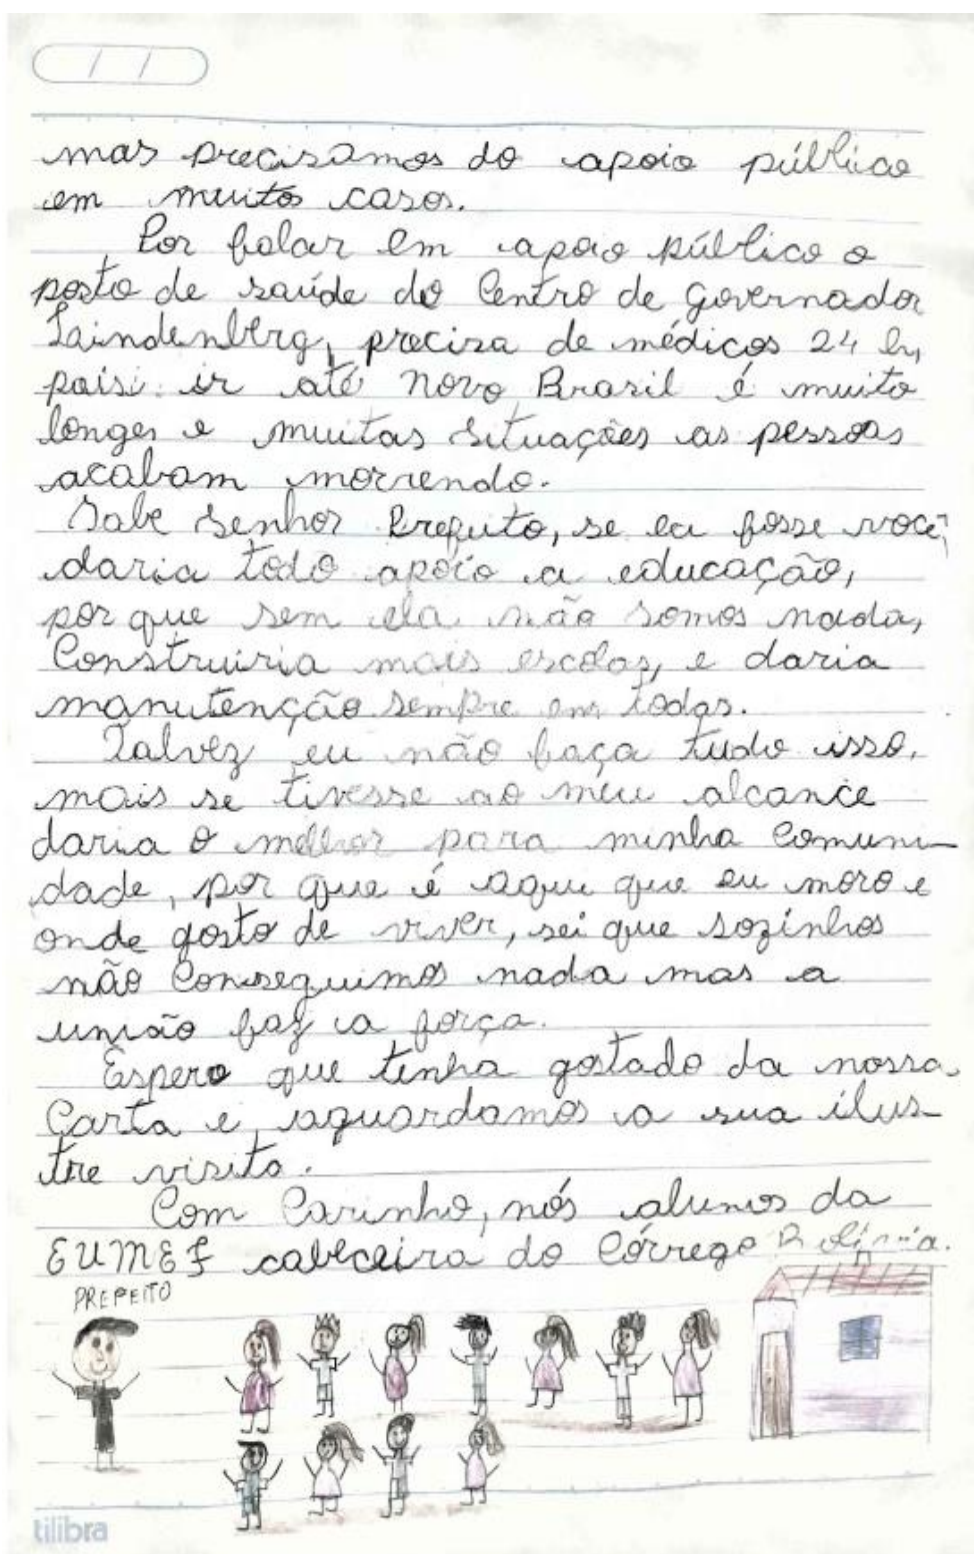 mas precisamos do apoio público
em muitos casos.
Por falar em apoio público o
posto de saúde do Centro de Governador
Laindenberg, precisa de médicos 24 h,
pois ir até Novo Brasil é muito
longe, e muitas situações as pessoas
acabam morrendo.
Sabe Senhor Prefeito, se eu fosse você,
daria todo apoio a educação,
por que sem ela não somos nada,
Construiria mais escolas, e daria
manutenção sempre em todas.
Talvez eu não faça tudo isso,
mais se tivesse ao meu alcance
daria o melhor para minha comuni-
dade, por que é aqui que eu moro e
onde gosto de viver, sei que sozinhos
não conseguimos nada mas a
união faz a força.
Espero que tenha gostado da nossa
Carta e aguardamos a sua ilus-
tre visita.
Com Carinho, nós alunos da
EUMEF cabeceira do Córrego
PREPEITO
tilibra